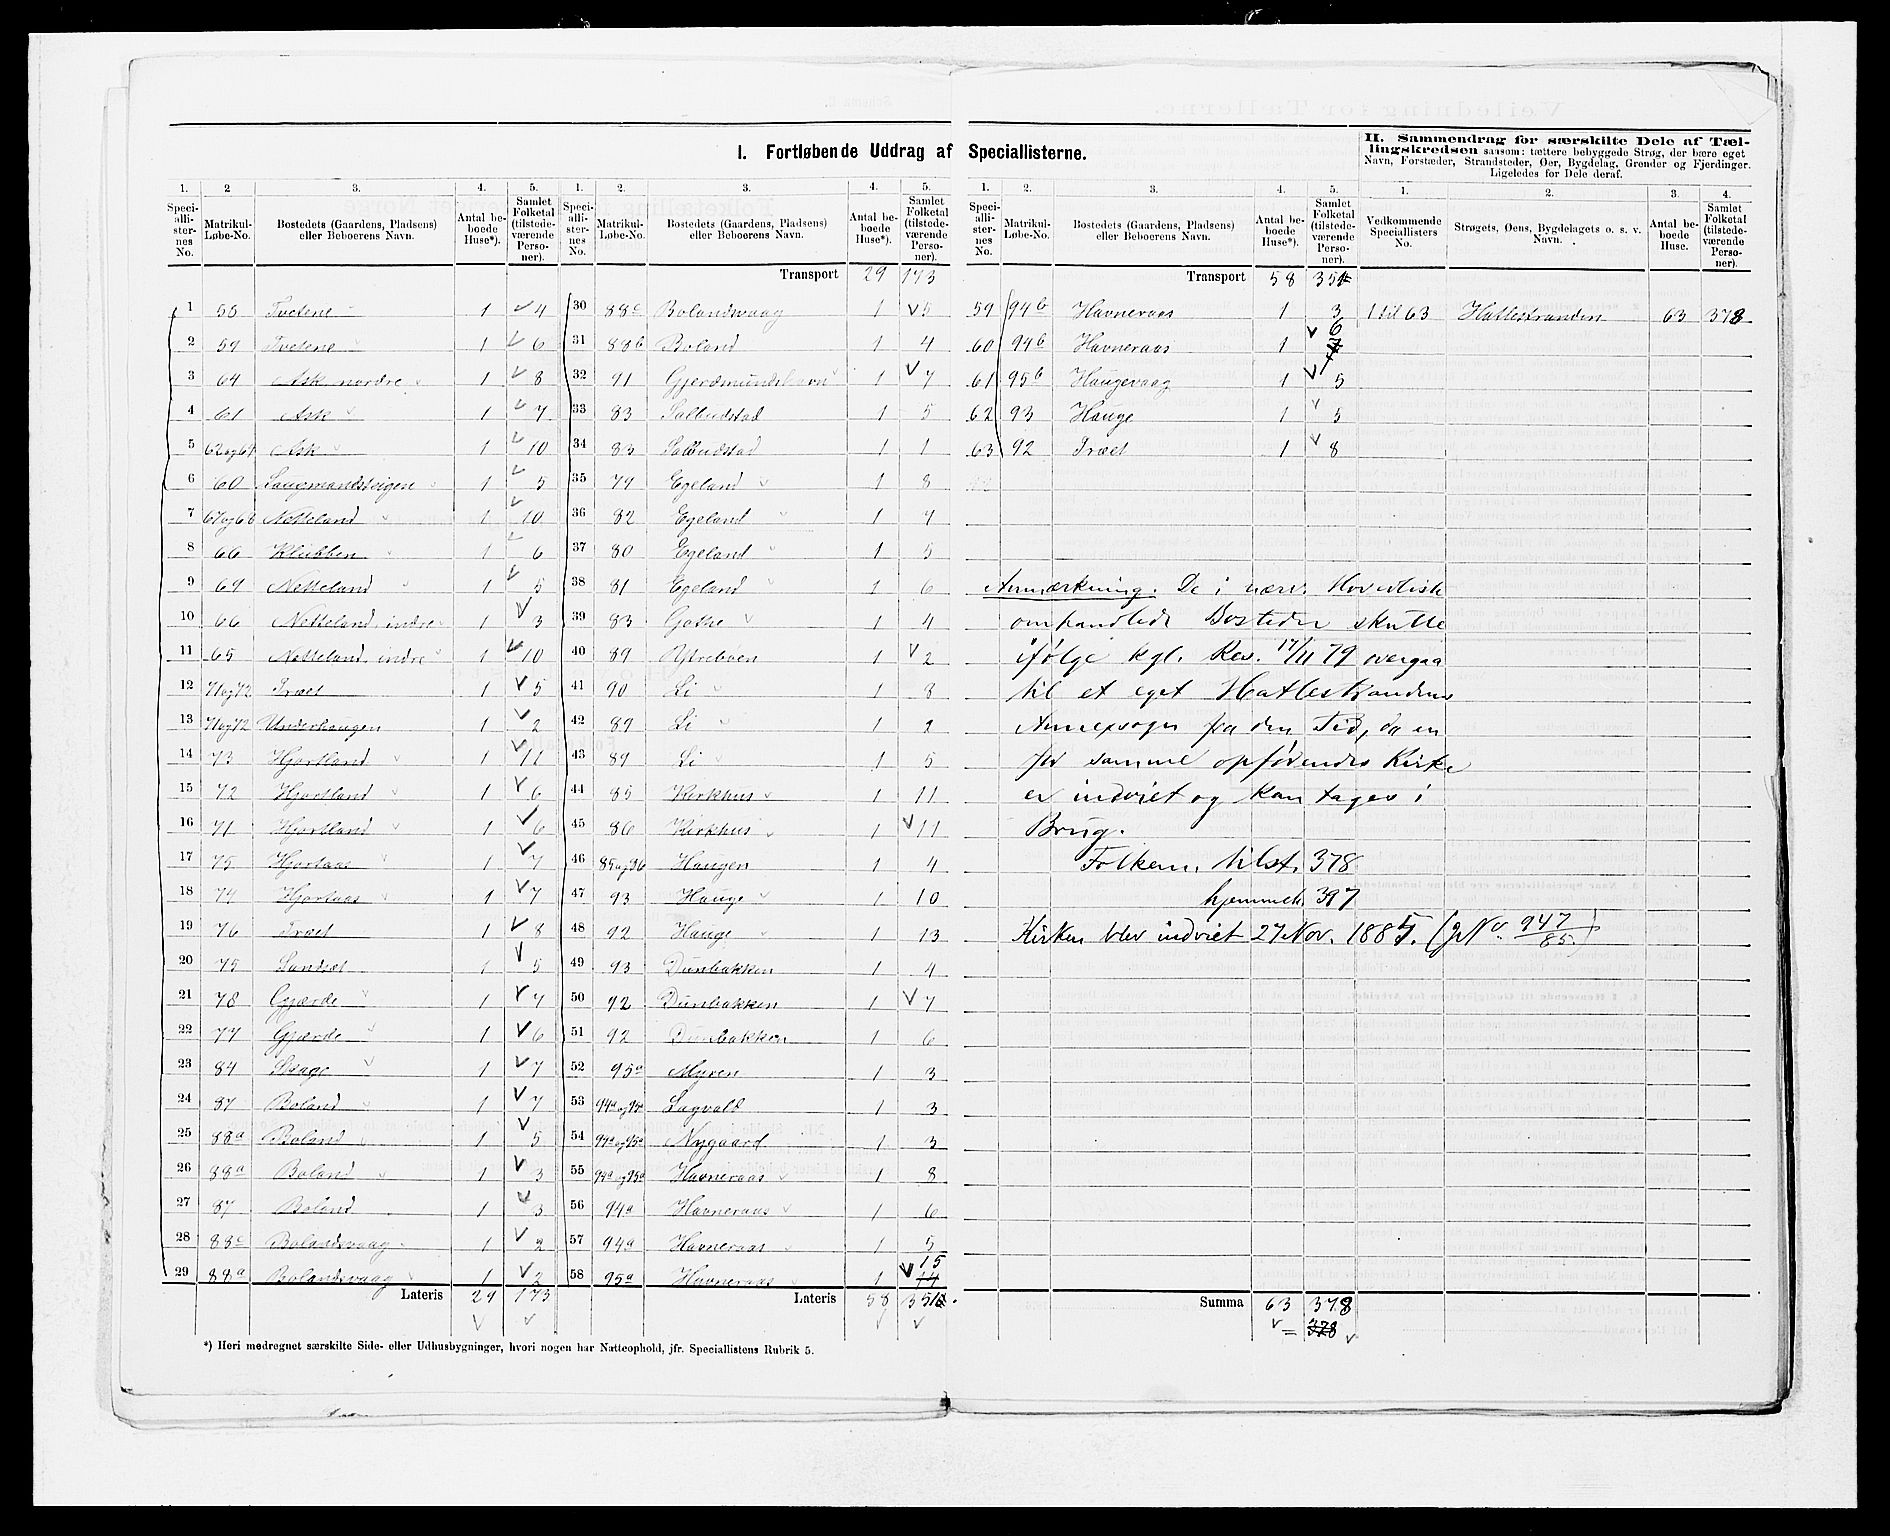 I. Fortløbende Uddrag af Speciallisterne.
II. Sammendrag for særskilte Dele af Tæl-
lingskredsen saasom: tættere bebyggede Strøg, der bære eget
Navn, Forstæder, Strandsteder, Øer, Bygdelag, Grender og Fjerdinger.
Ligeledes for Dele deraf.
1. 2 3. 4. 5.
Speciallisternes No. Matrikul-Løbe-No. Bostedets (Gaardens, Pladsens) eller Beboerens Navn. Antal beboede Huse*). Samlet Folketal (tilstedeværende Personer).
1 Tvetene 1 4
2 59 Tvetene 1 6
3 64 Ask nordre 1 8
4 61 Ask 1 7
5 Ask 1 10
6 60 Laugmandsvigen 1 5
7 67og68 Netteland 1 10
8 66 Klubben 1 6
9 69 Netteland 1 5
10 66 Netteland indre 1 3
11 65 Netteland indre 1 10
12 71og72 Træet 1 5
13 71og72 Underhaugen 1 2
14 73 Hjortland 1 11
15 72 Hjortland 1 6
16 71 Hjortland 1 6
17 75 Hjortaas 1 7
18 74 Hjortaas 1 7
19 76 Træet 1 8
20 75 Sandsæt 1 5
21 78 Gjærde 1 7
22 77 Gjærde 1 6
23 84 Skage 1 7
24 87 Boland 1 7
25 88a Boland 1 5
26 88a Boland 1 3
27 87 Boland 1 3
28 88c Bolandsvaag 1 2
29 88a Bolandsvaag 1 2
Lateris 29 173
1. 2. 3. 4. 5.
Speciallisternes No. Matrikul-Løbe-No. Bostedets (Gaardens, Pladsens) eller Beboerens Navn. Antal beboede Huse*). Samlet Folketal (tilstedeværende Personer).
Transport 29 173
30 88c Bolandsvaag 1 5
31 88b Boland 1 4
32 91 Gjerdmundshavn 1 7
33 83 Salbudstad 1 5
34 83 Salbudstad 1 1
35 79 Egeland 1 8
36 82 Egeland 1 7
37 80 Egeland 1 5
38 81 Egeland 1 6
39 83 Gothe 1 4
40 89 Ystebøen 1 2
41 90 Li 1 8
42 89 Li 1 2
43 89 Li 1 5
44 85 Kirkhus 1 11
45 86 Kirkhus 1 11
46 85og86 Haugen 1 4
47 93 Hauge 1 10
48 92 Hauge 1 13
49 93 Dunbakken 1 4
50 92 Dunbakken 1 7
51 92 Dunbakken 1 6
52 95a Myren 1 3
53 94a og 95a Lugvold 1 3
54 94a og 95a Nygaard 1 3
55 94a og 95a Havneraas 1 8
56 94a Havneraas 1 6
57 94a Havneraas 1 5
58 95a Havneraas 1 15
14
Lateris 58 351
*) Heri medregnet særskilte Side- eller Udhusbygninger, hvori nogen har Natteophold, jfr. Speciallistens Rubrik 5.
1. 2. 3. 4. 5.
Speciallisternes No. Matrikul-Løbe-No. Bostedets (Gaardens, Pladsens) eller Beboerens Navn. Antal beboede Huse*). Samlet Folketal (tilstedeværende Personer).
Transport 58 351
59 94b Havneraas 1 3
60 94b Havneraas 1 6
61 95b Haugevaag 1 5
62 93 Hauge 1 5
63 92 Træet 1 8
Anmærkning. De i nærv. Hovedliste
omhandlede Bosteder skulle
ifølge kgl. Res. 17/11 79 overgaa
til et eget Hatlestrandens
Annexsogn fra den Tid, da en
for samme opførendes Kirke
er indviet og kan tages i
Brug.
Folkem. tilst. 378
hjemmeh. 397
Kirken blev indviet 27 Nov. 1885. (JNo. 947/85)
Summa 63 378
378
1. 2. 3. 4.
Vedkommende Speciallisters No. Strøgets, Øens, Bygdelagets o. s. v. Navn. Antal beboede Huse. Samlet Folketal (tilstedeværende Personer).
1 til 63 Hatlestranden 63 378